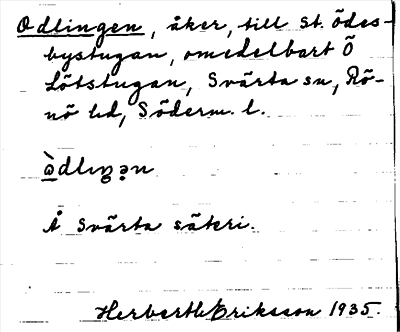 Odlingen, åker, till St. Ödes-
bystugan, omedelbart Ö
Lötstugan, Svärta sn, Rö-
nö hd, Söderm. l.
Å Svärta säteri.
Herbert Eriksson 1935.